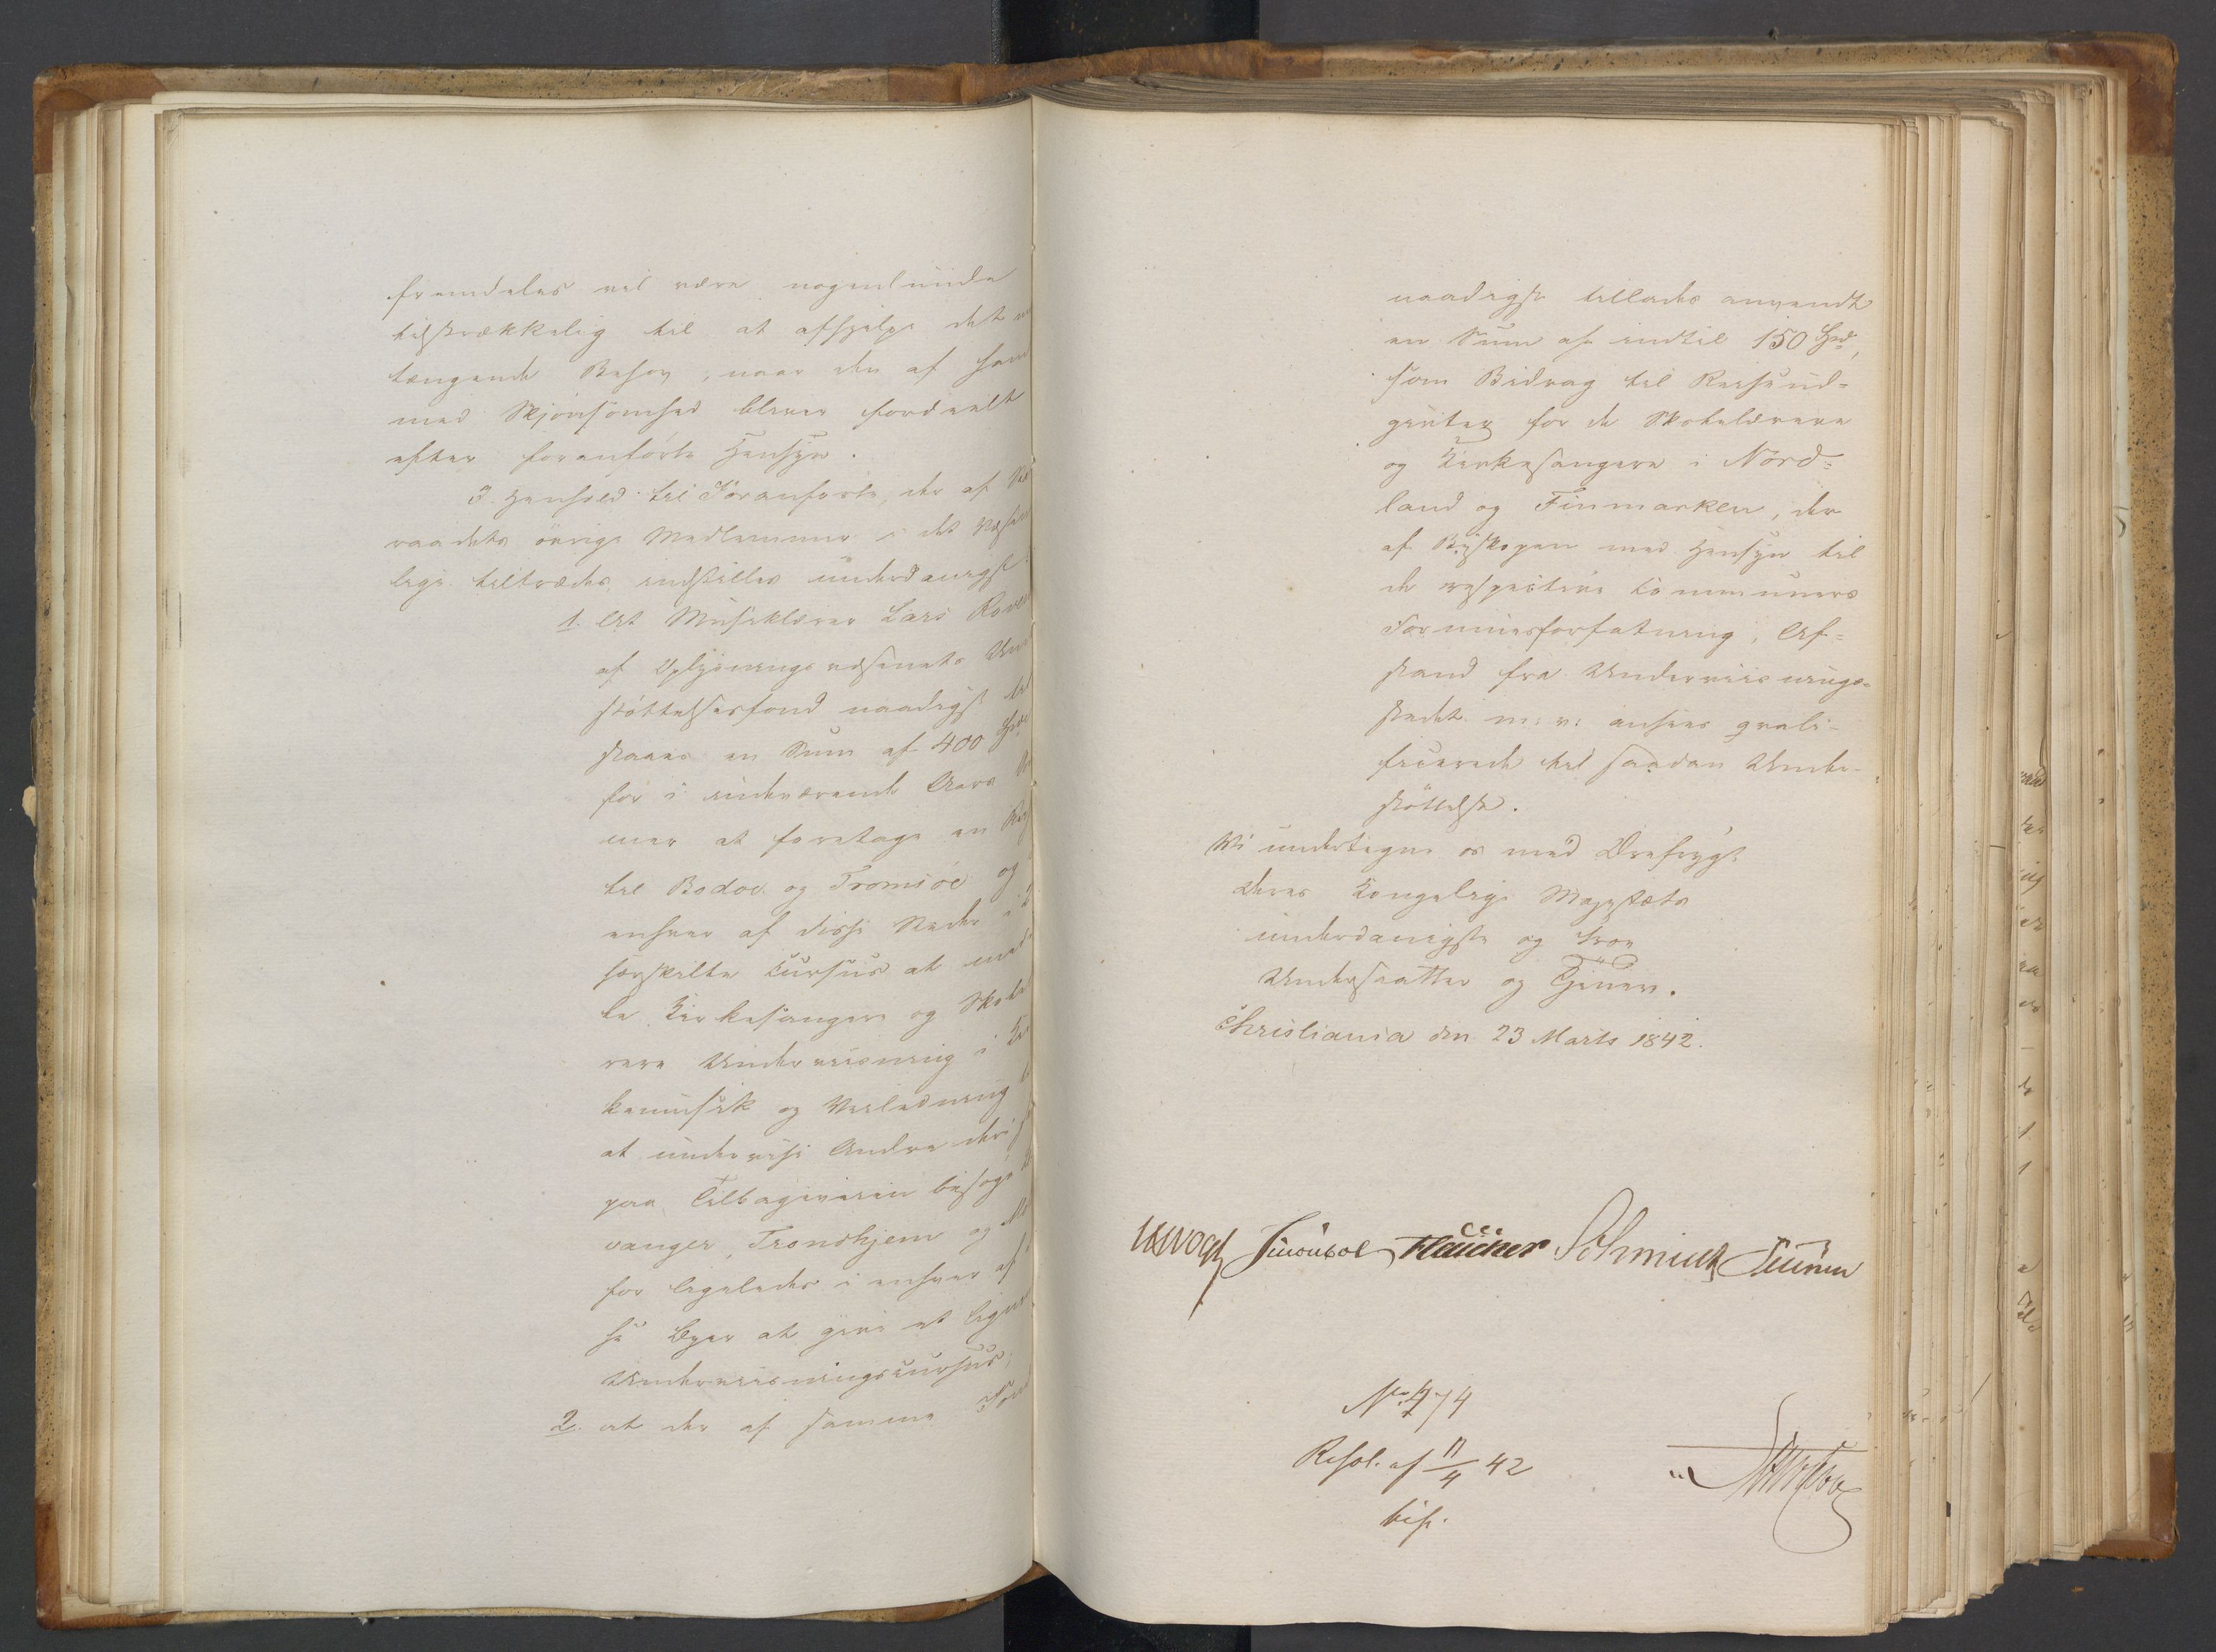 fremdeles vil være nogenlunde
tilstrækkelig til at afhjelpe det
tængende Behov, naar den af ham
med Skjönsomhed bliver fordeelt
efter foranförte Hensyn.
I Henhold til Foranførte, der af
raadets övrige Medlemmer i det Væsent
lige tiltrædes, indstilles underdanigst:
1. At Musiklærer Lars Rover
af Oplysningsvæsenets Un
støttelsesfond naadigst til
staaes en Sum af 400 Spd
for i indeværende Aars
mer at foretage en Rej
til Bodoe og Tromsöe og
enhver af disse Steder i
særskilte Cursus at med
le Kirkesangere og Skole
rere Underviisning i Kir
kemusik og Veiledning
at undervise Andre deri
paa Tilbageveien besøge
vanger, Trondhjem og
for ligeledes i enhver af
se Byer at give et lign
Underviisningscursus;
2. at der af samme Fon
naadigst tillades anvendt
en Sum af indtil 150 Spd,
som Bidrag til Reiseud-
givter for de Skolelærere
og Kirkesangere i Nord-
land og Finmarken, der
af Biskopen med Hensyn til
de respective Communers
Formuesforfatning, Af-
stand fra Underviisnings-
stedet m: v: ansees qvali-
ficerede til saadan Under-
støttelse.
Vi undertegne os med Ærefrygt
Deres Kongelige Majestæts
underdanigste og troe
Undersaatter og Tjenere.
Christiania den 23 Marts 1842.
Vogt Hauner Schmidt
No 474
Resol. af 11/4 42
bif.